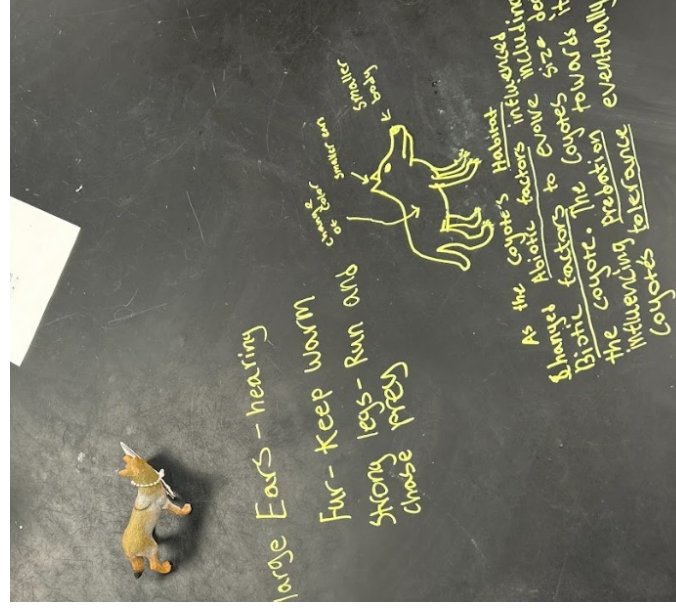 large Ears - hearing
Fur - Keep warm
Strong legs - Run and
chase prey
change
of color
smaller ears
smaller
body
As the coyote's Habitat
changed Abiotic factors influenced
Biotic factors to evolve including
the coyote. The coyotes size
Predation towards
influencing eventually
coyotes tolerance